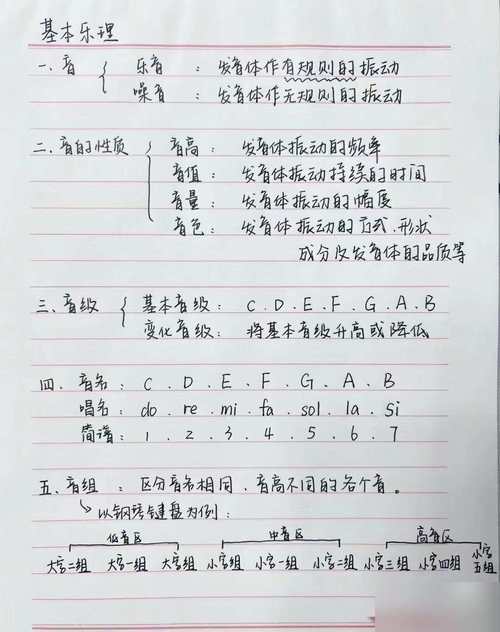 基本乐理
一、音 { 乐音：发音体作有规则的振动
噪音：发音体作无规则的振动
二、音的性质 { 音高：发音体振动的频率
音值：发音体振动持续的时间
音量：发音体振动的幅度
音色：发音体振动的方式、形状
成分及发音体的品质等
三、音级 { 基本音级：C．D．E．F．G．A．B
变化音级：将基本音级升高或降低
四、音名：C．D．E．F．G．A．B
唱名：do．re．mi．fa．sol．la．si
简谱：1．2．3．4．5．6．7
五、音组：区分音名相同，音高不同的各个音。
↳以钢琴键盘为例：
低音区 中音区 高音区
大字二组 大字一组 大字组 小字组 小字一组 小字二组 小字三组 小字四组 小字五组